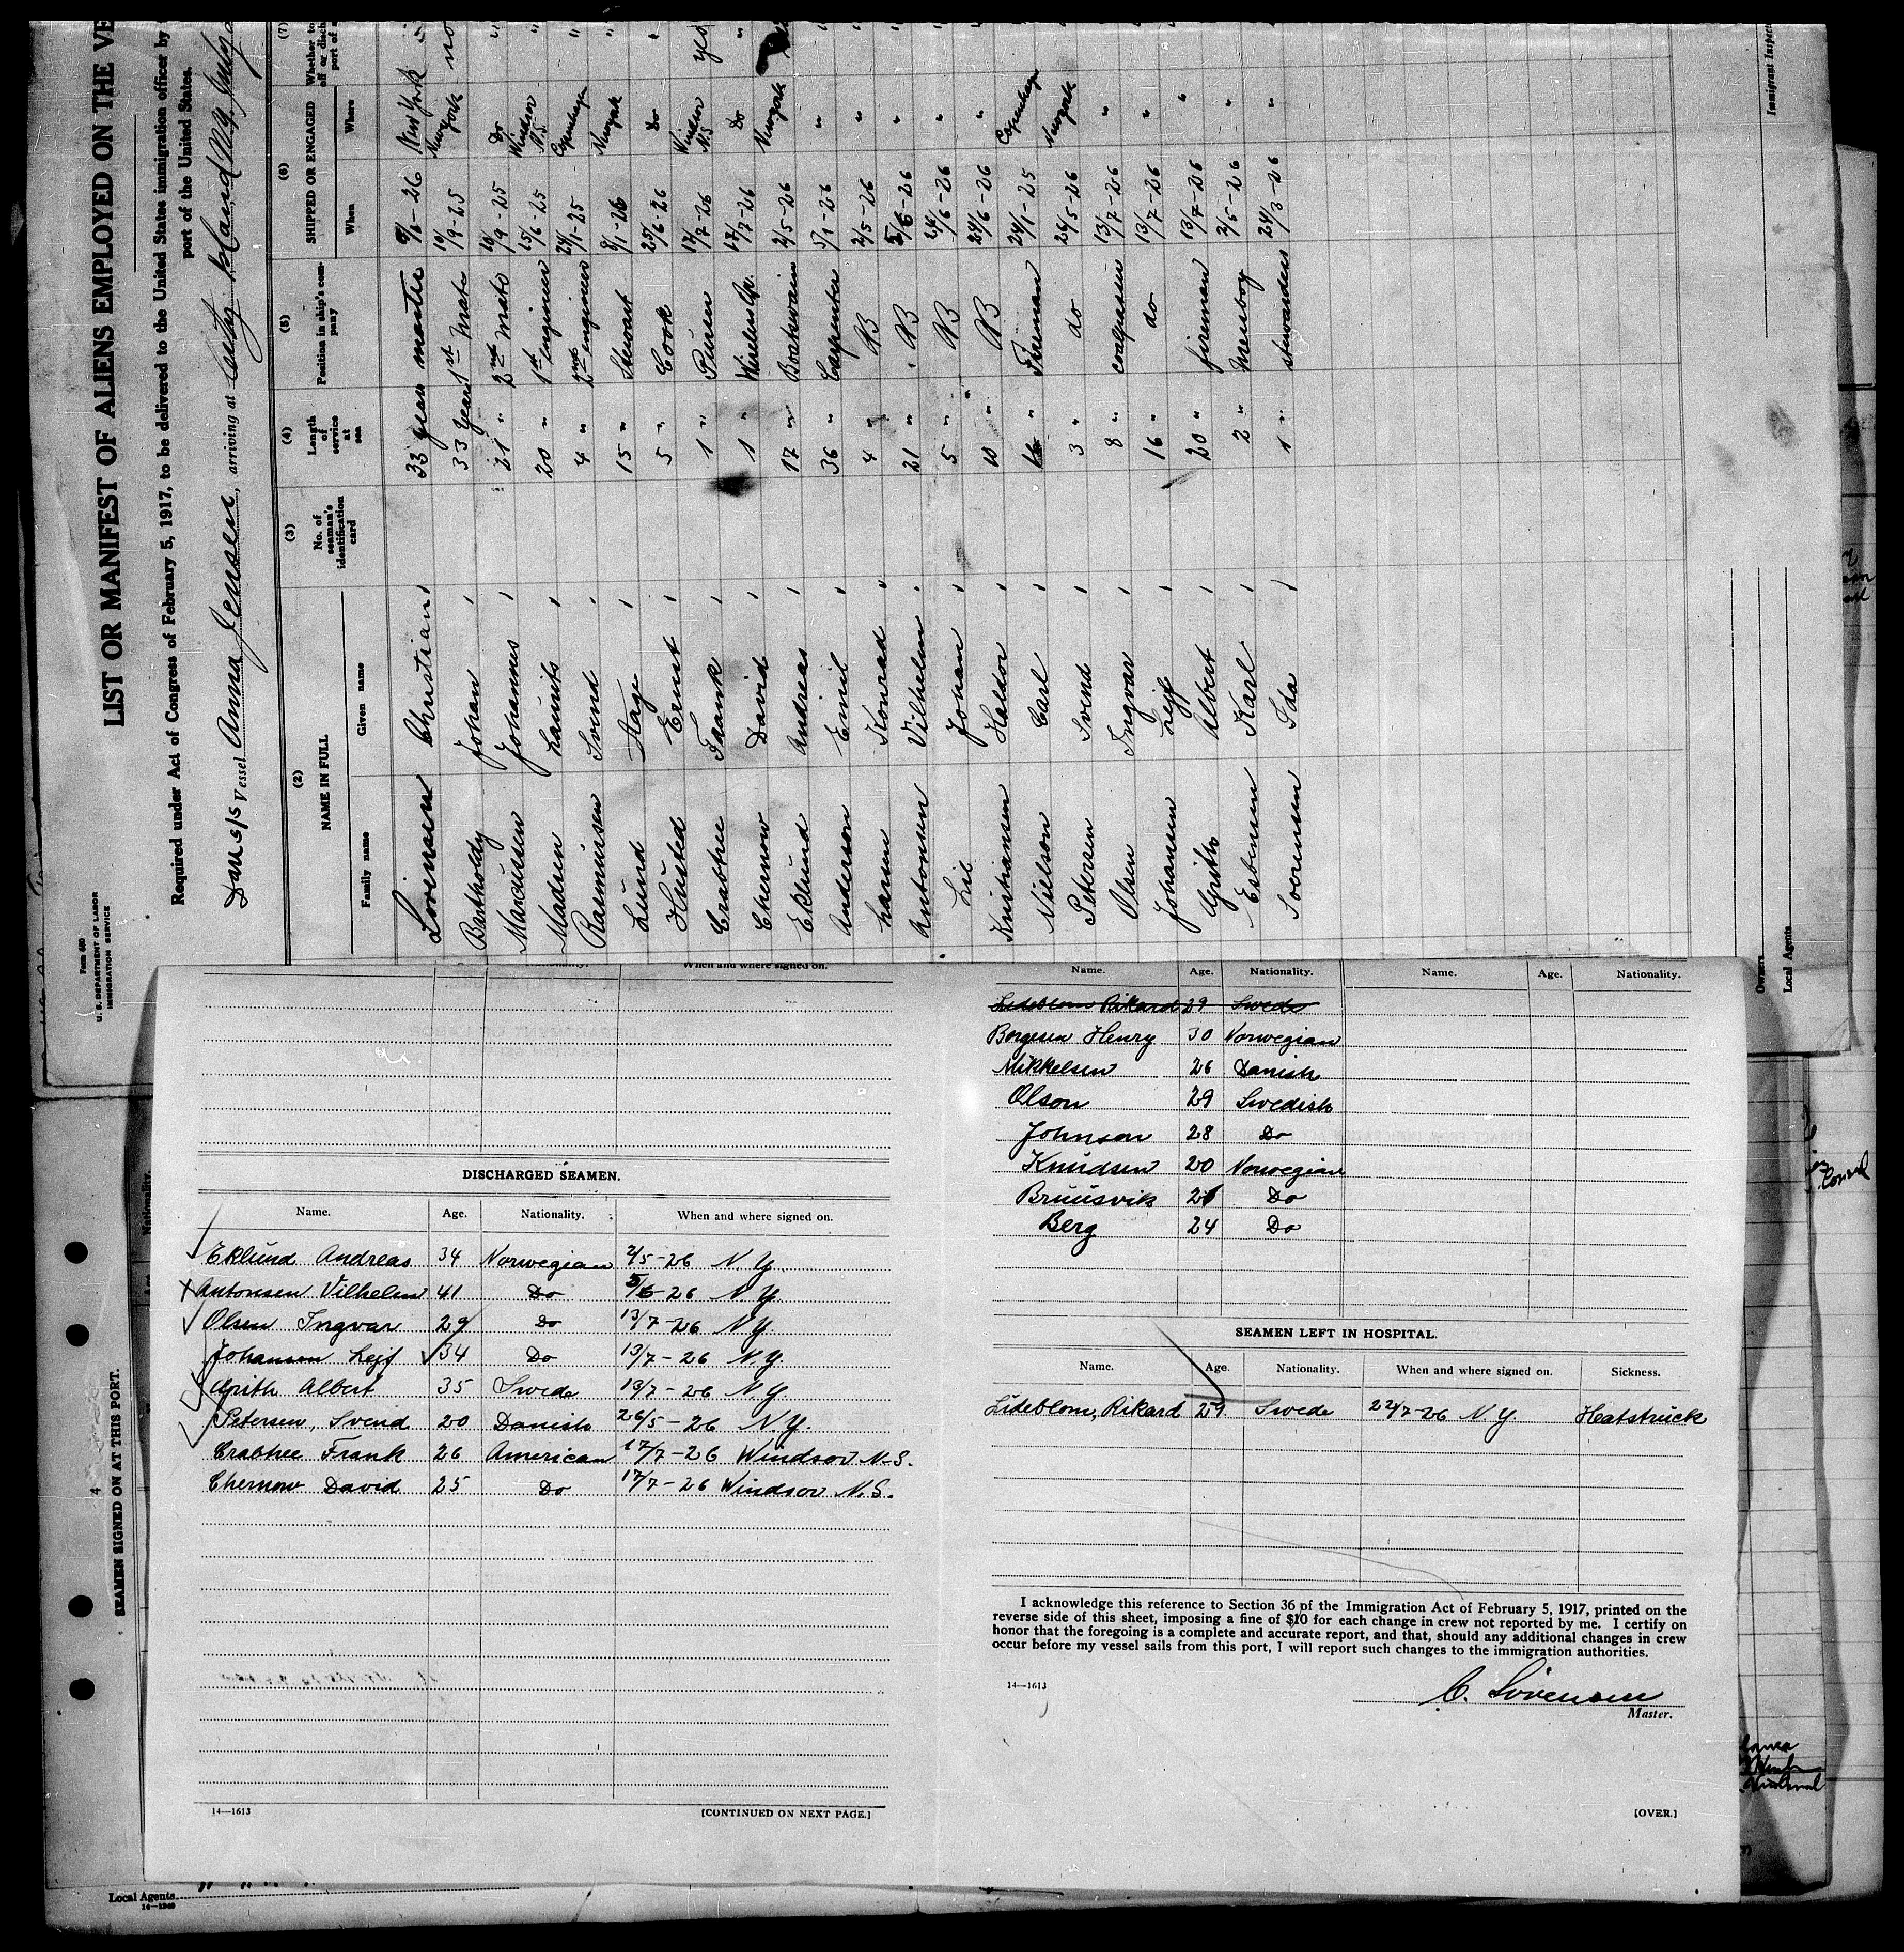 Form 680
U. S. DEPARTMENT OF LABOR
IMMIGRATION SERVICE
LIST OR MANIFEST OF ALIENS EMPLOYED ON THE VE
Required under Act of Congress of February 5, 1917, to be delivered to the United States immigration officer by
port of the United States.
Dan s/s Vessel Anna Jensen, arriving at
(2) (3) (4) (5) (6) (7)
NAME IN FULL No. of seaman's identification card Length of service at sea Position in ship's company SHIPPED OR ENGAGED
Family name Given name When Where
Sörensen Christian 33 years master 26 New York
Bartholdy Johan 33 years 1st Mate 10/9-25 Newyork no
Marcussen Johannes 21 " 2nd Mate 10/9-25 Do "
Madsen Launits 20 " 1st engineer 15/6-25 Windsor N.S. "
Rasmussen Svend 4 " 2nd engineer 24/1-25 Copenhagen "
Lund Aage 15 " Stewart 9/1-26 Newyork "
Husted Ernst 5 " Cook 25/6-26 Do "
Crabtree Frank 1 " Pursen 17/7-26 Windsor N.S yes
Chernow David 1 " Wireless Op. 17/7-26 Do "
Eklund Andreas 17 " Boatswain 2/5-26 Newyork
Anderson Emil 36 " Carpenter 5/1-26 "
Larsen Konrad 4 " AB 2/5-26 "
Antonsen Vilhelm 21 " AB 5/6-26 "
Lie Johan 5 " AB 24/6-26 "
Kristiansen Haldor 10 " AB 24/6-26 "
Nielson Carl 16 " Fireman 24/1-25 Copenhagen
Petersen Svend 3 " do 26/5-26 Newyork
Olsen Ingvar 8 " coalpasser 13/7-26 "
Johansen Lejf 16 " do 13/7-26 "
Grith Albert 20 " fireman 13/7-26 "
Esbensen Karl 2 " Messboy 2/5-26 "
Soerensen Ida 1 " stewardess 24/3-26 "
Immigrant Inspect
Owners
Local Agents
Nationality. When and where signed on.
DISCHARGED SEAMEN.
Name. Age. Nationality. When and where signed on.
Eklund Andreas 34 Norwegian 2/5-26 N.Y.
Antonsen Vilhelm 41 Do 5/6-26 N.Y.
Olsen Ingvar 29 Do 13/7-26 N.Y.
Johansen Lejf 34 Do 13/7-26 N.Y.
Grith Albert 35 Swede 13/7-26 N.Y.
Petersen, Svend 20 Danish 26/5-26 N.Y.
Crabtree Frank 26 American 17/7-26 Windsor N.S.
Chernow David 25 Do 17/7-26 Windsor N.S.
14—1613 [CONTINUED ON NEXT PAGE.]
Name. Age. Nationality. Name. Age. Nationality.
Lideblom Rikard 29 Swede
Borgesen Henry 30 Norwegian
Mikkelsen 26 Danish
Olson 29 Swedish
Johnson 28 Do
Knudsen 20 Norwegian
Bruusvik 21 Do
Berg 24 Do
SEAMEN LEFT IN HOSPITAL.
Name. Age. Nationality. When and where signed on. Sickness.
Lideblom, Rikard 29 Swede 22/7-26 N.Y. Heatstruck
I acknowledge this reference to Section 36 of the Immigration Act of February 5, 1917, printed on the
reverse side of this sheet, imposing a fine of $10 for each change in crew not reported by me. I certify on
honor that the foregoing is a complete and accurate report, and that, should any additional changes in crew
occur before my vessel sails from this port, I will report such changes to the immigration authorities.
14—1613
C. Sörensen
Master.
[OVER.]
SEAMEN SIGNED ON AT THIS PORT.
4
Nationality.
Local Agents
14—1240